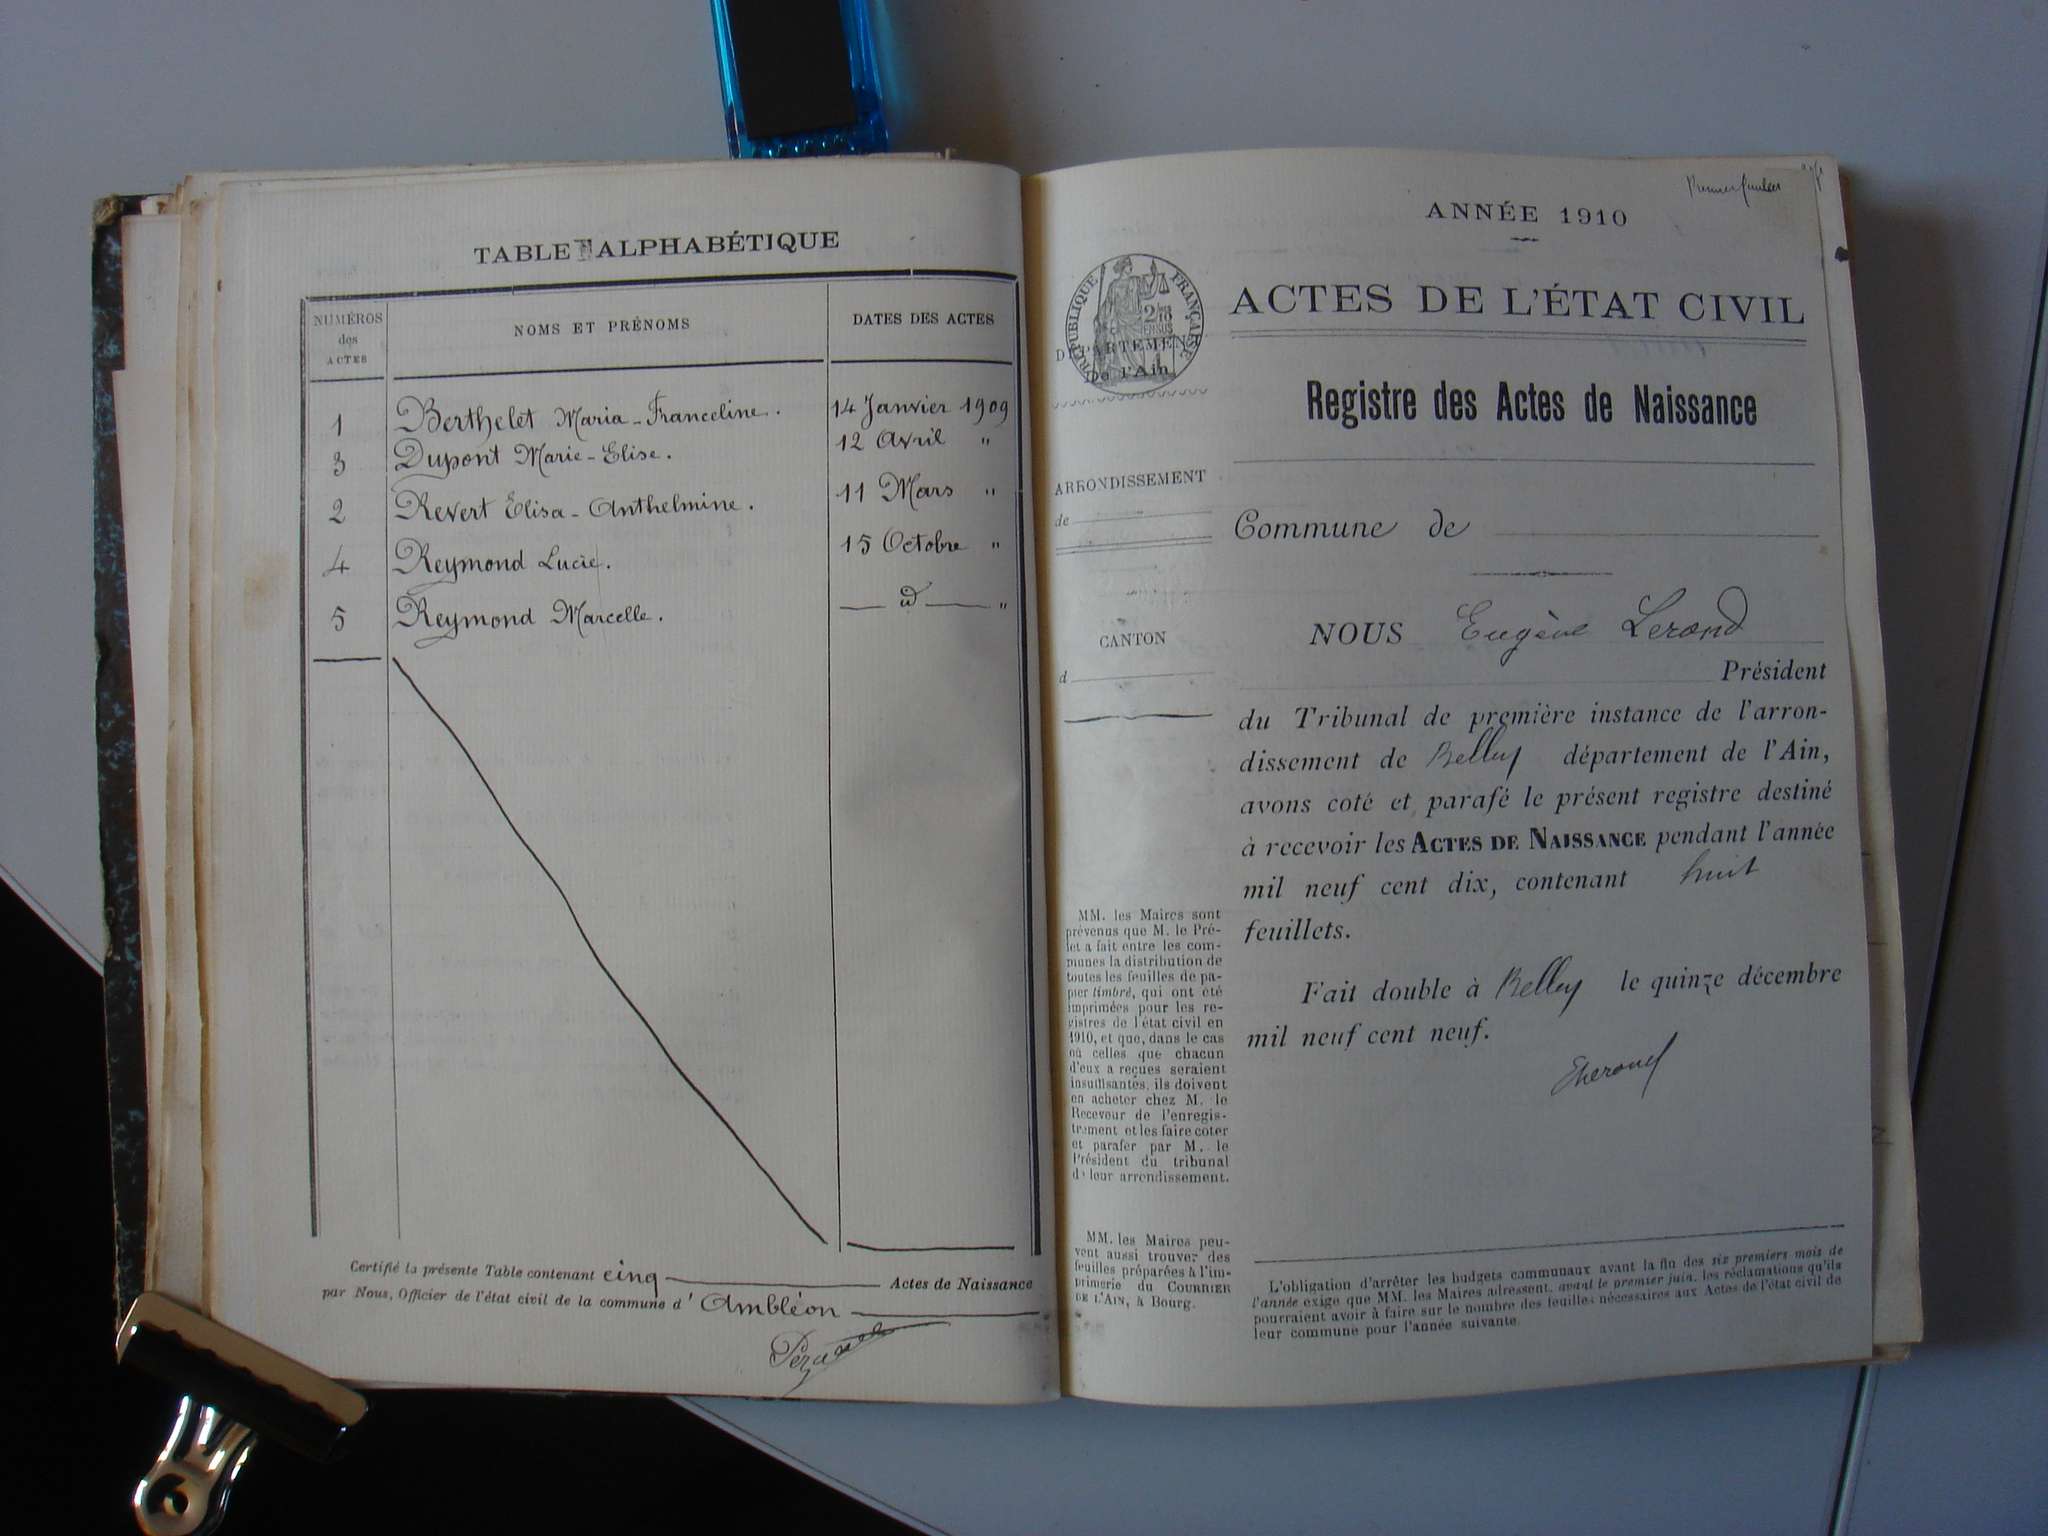 TABLE ALPHABÉTIQUE
NUMÉROS des ACTES
NOMS ET PRÉNOMS
DATES DES ACTES
1 Berthelet Maria-Franceline. 14 Janvier 1909
3 Dupont Marie-Elise. 12 Avril "
2 Revert Elisa-Anthelmine. 11 Mars "
4 Reymond Lucie. 15 Octobre "
5 Reymond Marcelle. — id — "
Certifié la présente Table contenant cinq Actes de Naissance
par Nous, Officier de l'état civil de la commune d'Ambléon
Premier feuillet
ANNÉE 1910
RÉPUBLIQUE FRANÇAISE
DÉPARTEMENT
De l'Ain
ACTES DE L'ÉTAT CIVIL
Registre des Actes de Naissance
ARRONDISSEMENT
de
Commune de
CANTON
d
NOUS Eugène Lerond
Président
du Tribunal de première instance de l'arron-
dissement de Belley département de l'Ain,
avons coté et parafé le présent registre destiné
à recevoir les ACTES DE NAISSANCE pendant l'année
mil neuf cent dix, contenant huit
feuillets.
Fait double à Belley le quinze décembre
mil neuf cent neuf.
MM. les Maires sont
prévenus que M. le Pré-
fet a fait entre les com-
munes la distribution de
toutes les feuilles de pa-
pier timbré, qui ont été
imprimées pour les re-
gistres de l'état civil en
1910, et que, dans le cas
où celles que chacun
d'eux a reçues seraient
insuffisantes, ils doivent
en acheter chez M. le
Receveur de l'enregis-
trement et les faire coter
et parafer par M. le
Président du tribunal
de leur arrondissement.
MM. les Maires peu-
vent aussi trouver des
feuilles préparées à l'im-
primerie du COURRIER
DE L'AIN, à Bourg.
L'obligation d'arrêter les budgets communaux avant la fin des six premiers mois de
l'année exige que MM. les Maires adressent, avant le premier juin, les réclamations qu'ils
pourraient avoir à faire sur le nombre des feuilles nécessaires aux Actes de l'état civil de
leur commune pour l'année suivante.